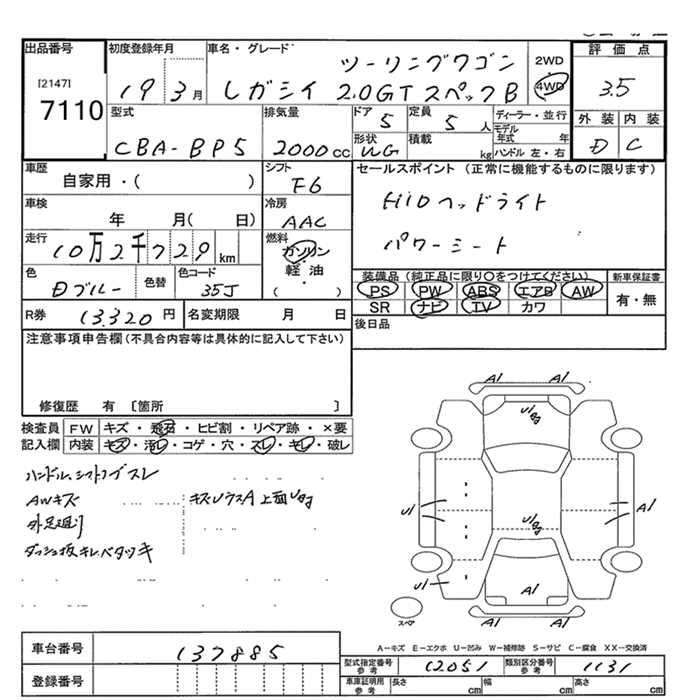 出品番号
[2147]
7110
初度登録年月
19年3月
車名・グレード
ツーリングワゴン
レガシイ 2.0GTスペックB
2WD
4WD
評価点
3.5
外装 内装
D C
型式
CBA-BP5
排気量
2000cc
ドア
5
定員
5人
形状
WG
積載
kg
ディーラー・並行
モデル年式 年
ハンドル 左・右
車歴
自家用・( )
シフト
F6
セールスポイント (正常に機能するものに限ります)
HIDヘッドライト
パワーシート
車検
年 月( 日)
冷房
AAC
走行
10万2千729km
燃料
ガソリン・軽油・( )
色
Dブルー
色替
色コード
35J
装備品(純正品に限り○をつけてください)
PS PW ABS エアB AW
SR ナビ TV カワ
新車保証書
有・無
R券
13,320円
名変期限 月 日
後日品
注意事項申告欄(不具合内容等は具体的に記入して下さい)
修復歴 有 〔箇所 〕
検査員記入欄
FW キズ・飛石・ヒビ割・リペア跡・×要
内装 キズ・汚レ・コゲ・穴・スレ・キレ・破レ
ハンドル、シフトノブスレ
AWキズ
キズUウスA上面Ug
外足廻り
ダッシュ板キレベタツキ
A1 A1
Ug
U1
A1
Ug
U1
A1
A1 A1
スペア
A-キズ E-エクボ U-凹み W-補修跡 S-サビ C-腐食 XX-交換済
車台番号
137885
登録番号
型式指定番号参考
12051
類別区分番号参考
1131
車庫証明用参考
長さ cm
幅 cm
高さ cm